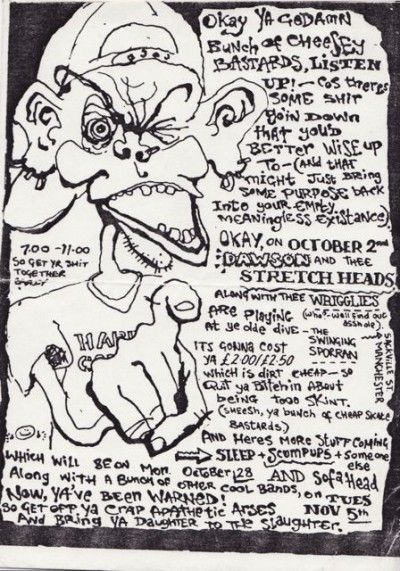 Okay Ya GoDamn
Bunch of Cheesey
BASTARDS, LISTEN
UP! - Cos theres
SOME SHIT
GOIN DOWN
that you'D
BETTER WISE UP
TO - (And that
might Just Bring
Some Purpose back
Into your EMPTY,
MEANINGLESS EXISTANCE)
OKAY, on OCTOBER 2nd
DAWSON AND THEE
STRETCH HEADS
ALONG WITH THEE WRIGGLIES
(who?-well find out
asshole).
ARE PLAYING
At ye olde dive - THE
SWINGING
SPORRAN
SACKVILLE ST.
MANCHESTER
ITS GONNA COST
YA £2.00/£2.50
WHICH IS DIRT CHEAP - SO
QUIT YA BITCHIN ABOUT
being tooo SKINT.
(SHEESH, ya bunch of CHEAP SKATE
BASTARDS)
AND HERES MORE STUFF COMING
SLEEP + SCUMPUPS + someone
else
WHICH WILL BE ON MON. OCTOBER 28
Along with A BUNCH OF OTHER COOL BANDS, on TUES
NOV 5th
AND Sofa Head
NOW, YA'VE BEEN WARNED!
SO GET OFF YA CRAP APATHETIC ARSES
AND BRING YA DAUGHTER TO THE SLAUGHTER.
7.00 - 11.00
SO GET YR SHIT
TOGETHER
HAPPY